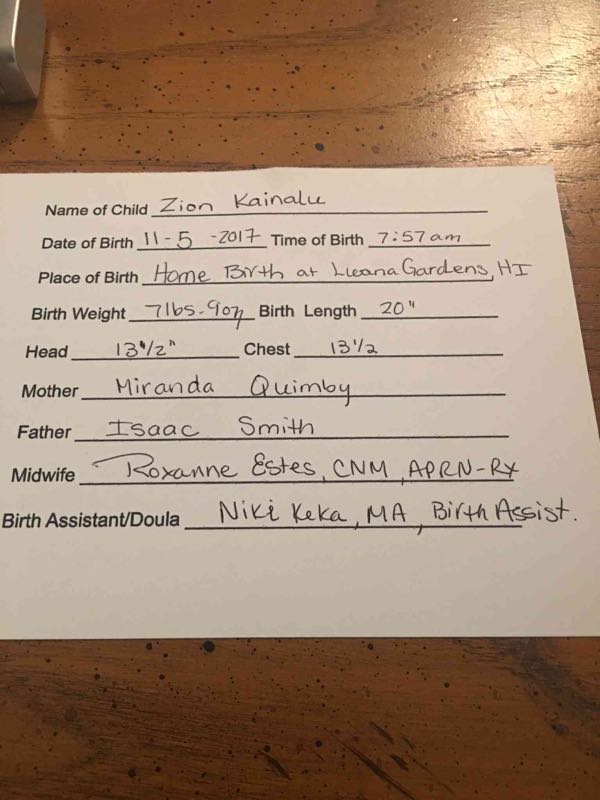 Name of Child Zion Kainalu
Date of Birth 11-5-2017 Time of Birth 7:57am
Place of Birth Home Birth at Lwana Gardens, HI
Birth Weight 7lbs-9oz Birth Length 20"
Head 13 1/2" Chest 13 1/2
Mother Miranda Quimby
Father Isaac Smith
Midwife Roxanne Estes, CNM, APRN-Rx
Birth Assistant/Doula Niki Keka, MA, Birth Assist.